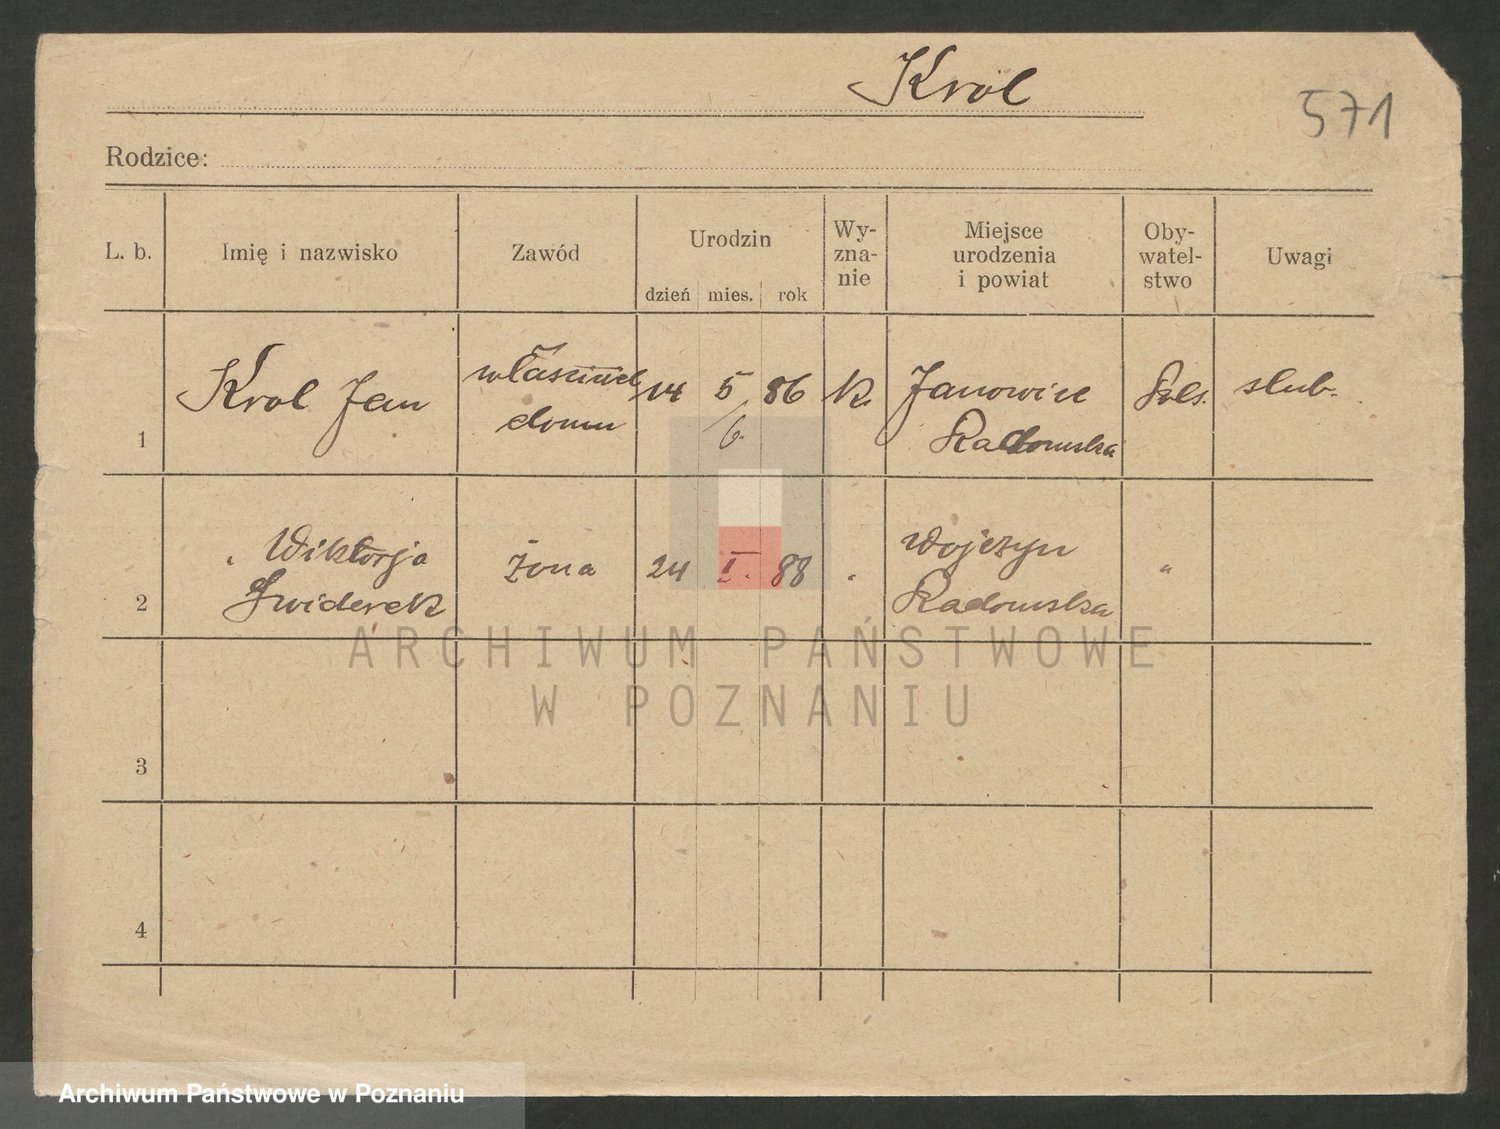 Król
571
Rodzice:
L. b.
Imię i nazwisko
Zawód
Urodzin
dzień mies. rok
Wy-
zna-
nie
Miejsce
urodzenia
i powiat
Oby-
watel-
stwo
Uwagi
1
Krol Jan
właściciel
domu
14 5 86
6
k.
Janowice
Radomska
Pols.
slub.
2
Wiktorja
Swiderek
żona
24 I. 88
Wojczyn
Radomska
"
3
4
ARCHIWUM PAŃSTWOWE
W POZNANIU
Archiwum Państwowe w Poznaniu